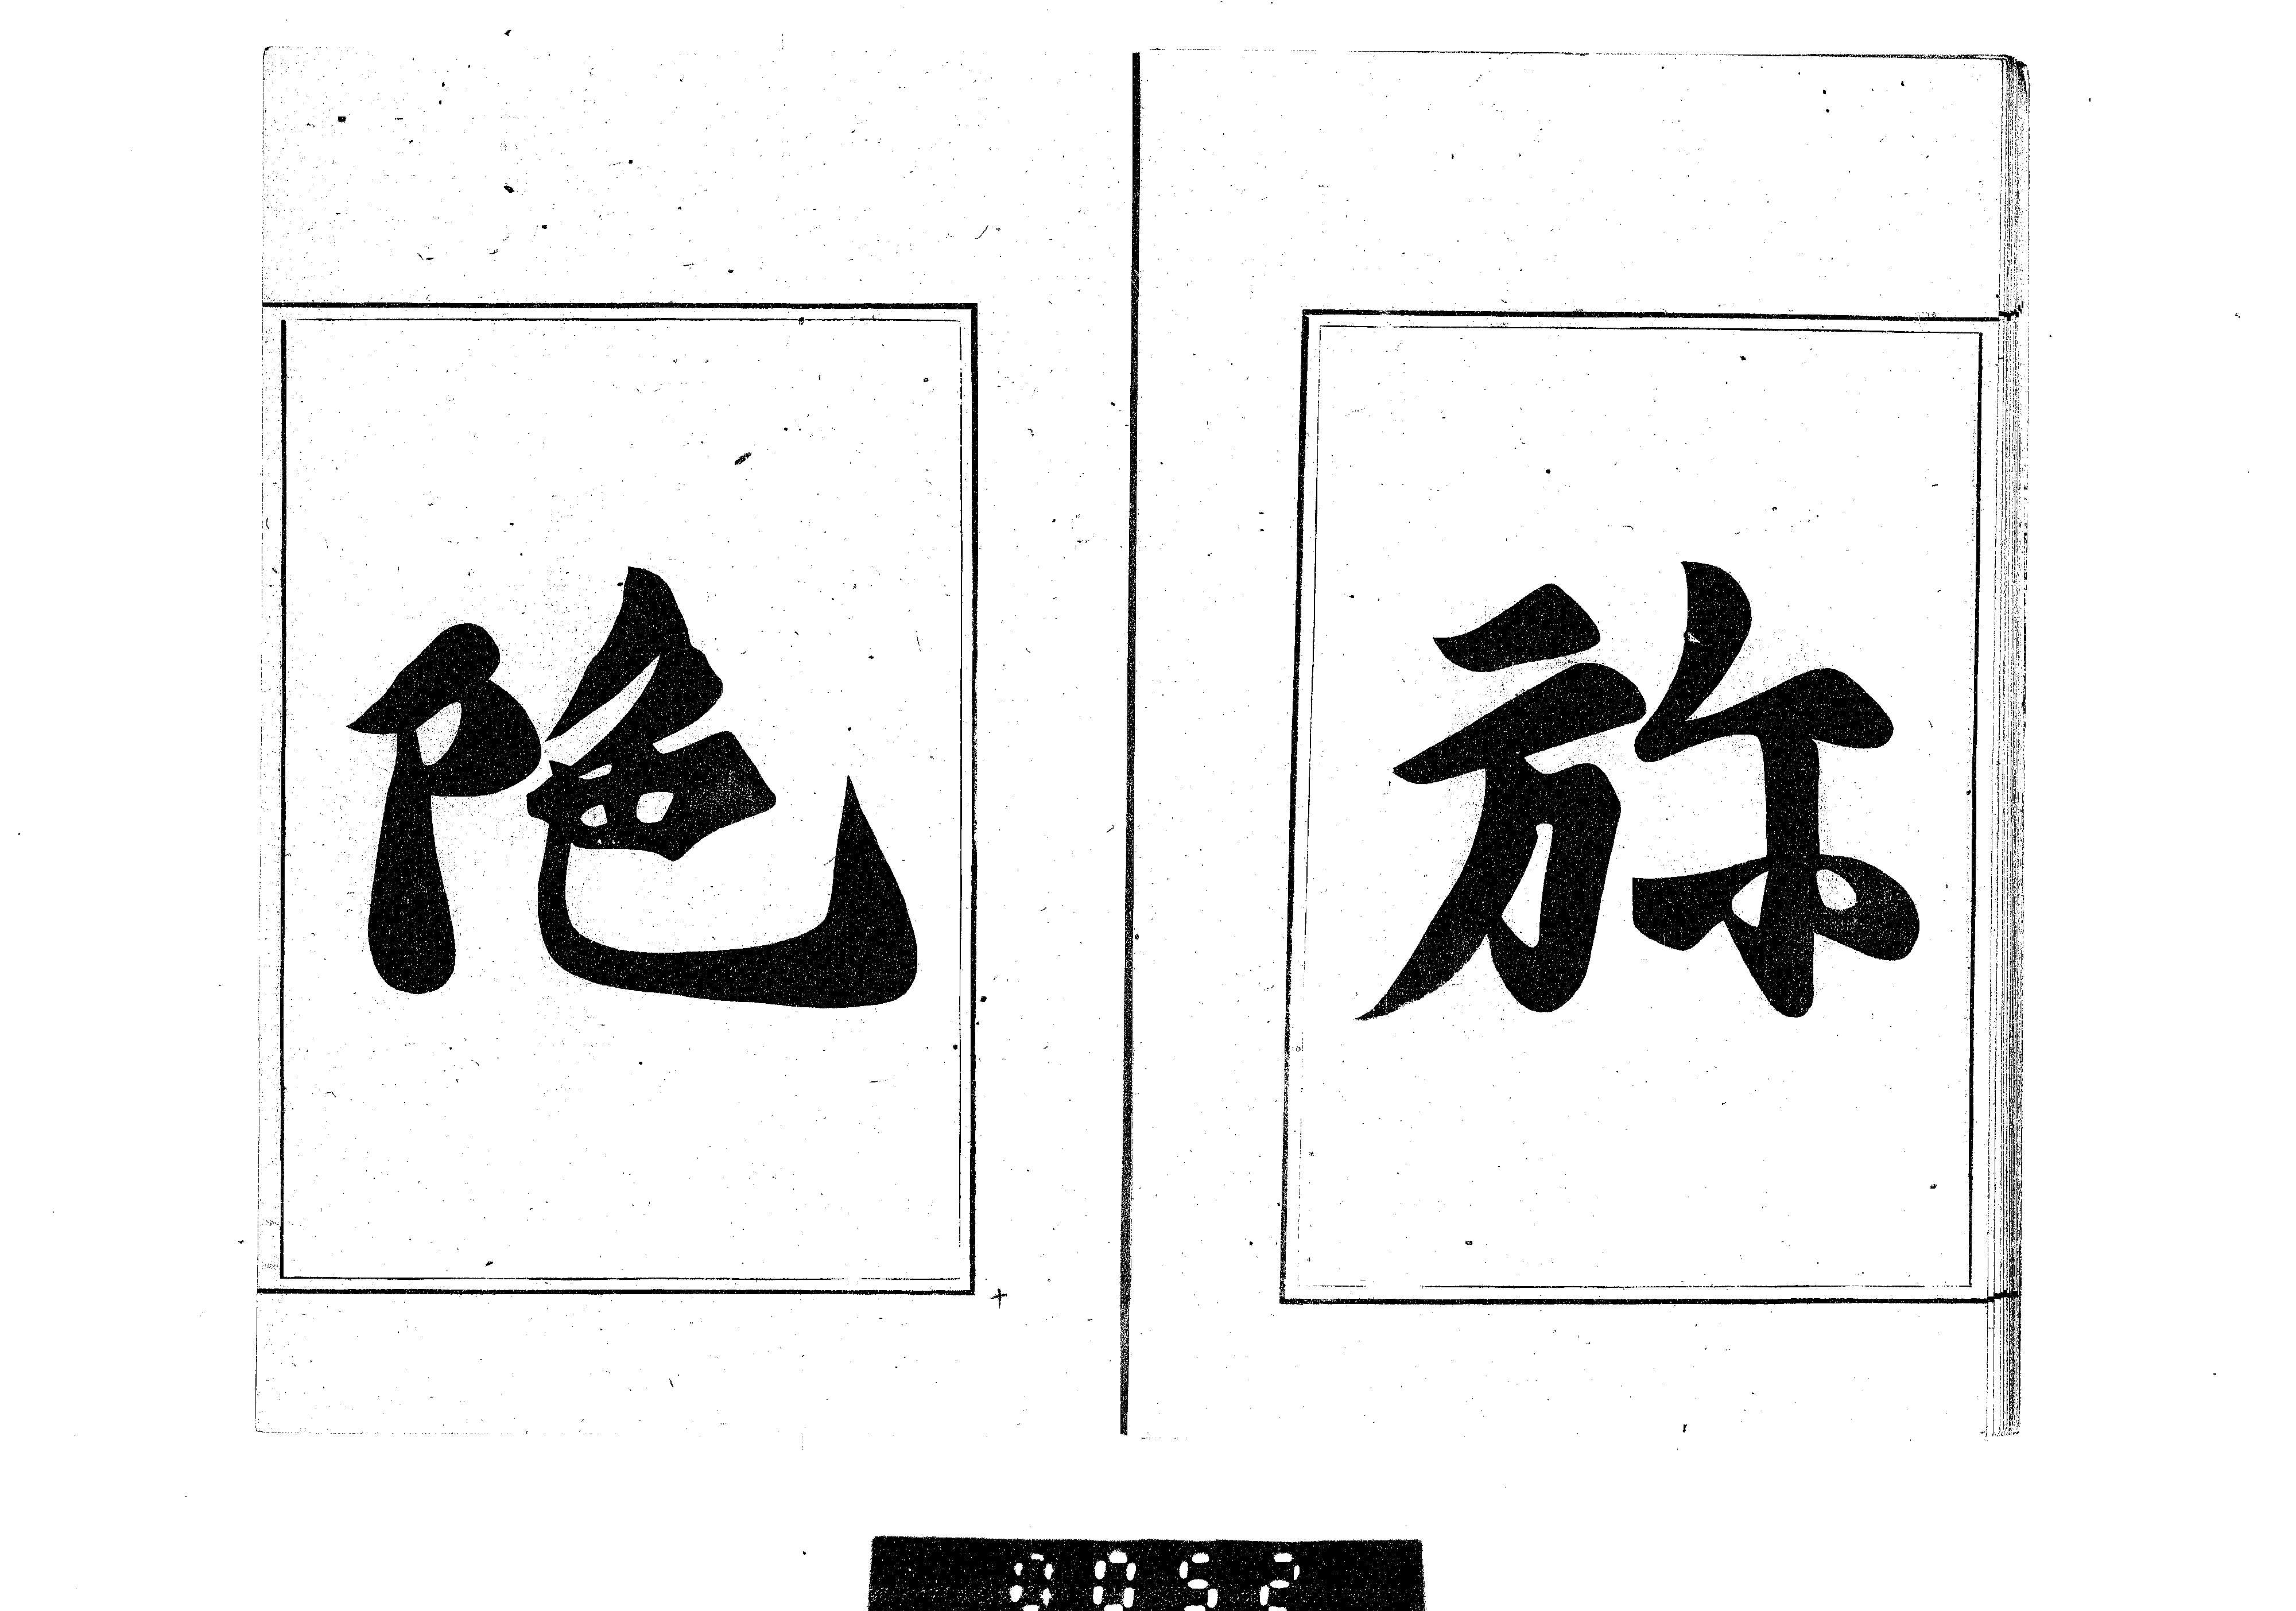 旀
陁
0052